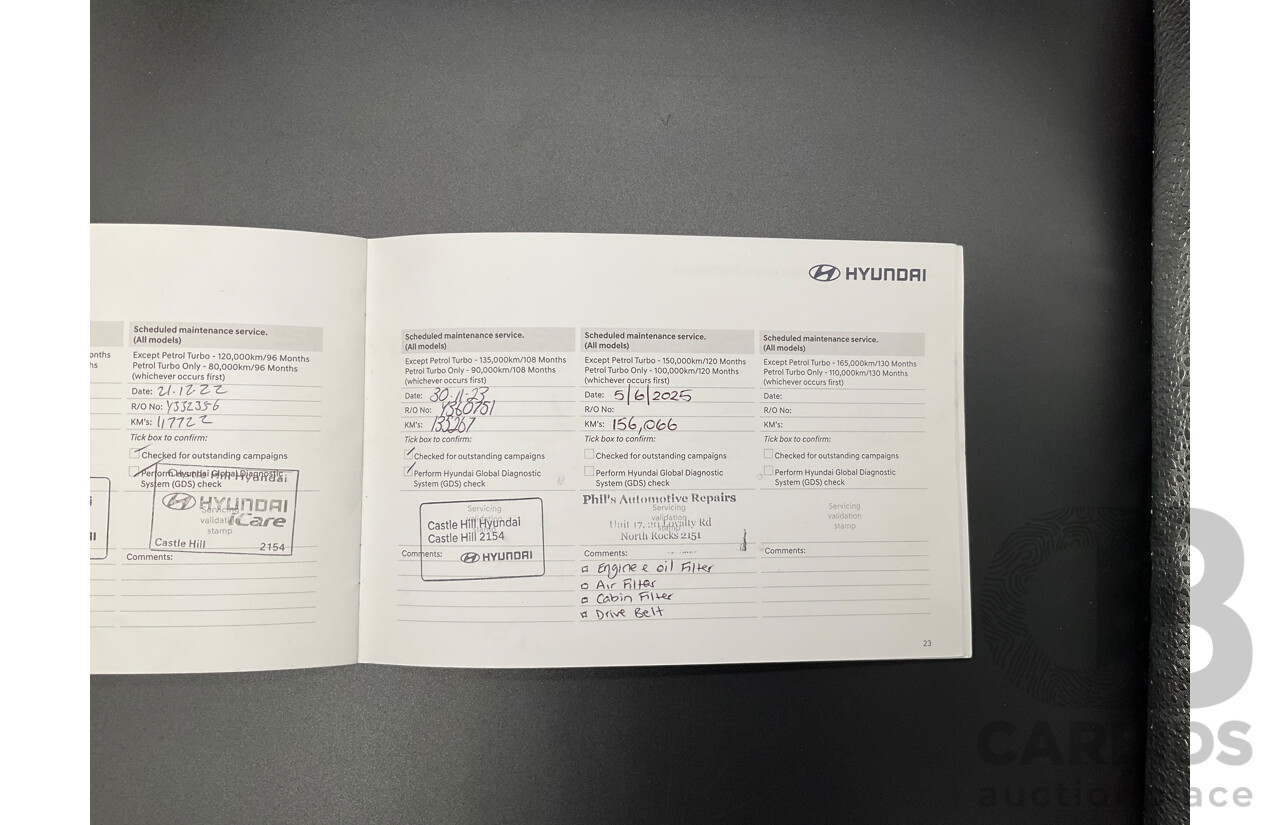 HYUNDAI
onths
hs
Scheduled maintenance service.
(All models)
Except Petrol Turbo - 120,000km/96 Months
Petrol Turbo Only - 80,000km/96 Months
(whichever occurs first)
Date: 21.12.22
R/O No: Y332356
KM's: 117722
Tick box to confirm:
Checked for outstanding campaigns
Perform Hyundai Global Diagnostic
System (GDS) check
Castle Hill Hyundai
HYUNDAI
iCare
Servicing
validation
stamp
Castle Hill 2154
Comments:
Scheduled maintenance service.
(All models)
Except Petrol Turbo - 135,000km/108 Months
Petrol Turbo Only - 90,000km/108 Months
(whichever occurs first)
Date: 30.11.23
R/O No:
KM's: 135267
Tick box to confirm:
Checked for outstanding campaigns
Perform Hyundai Global Diagnostic
System (GDS) check
Servicing
validation
Castle Hill Hyundai
Castle Hill 2154
HYUNDAI
Comments:
Scheduled maintenance service.
(All models)
Except Petrol Turbo - 150,000km/120 Months
Petrol Turbo Only - 100,000km/120 Months
(whichever occurs first)
Date: 5/6/2025
R/O No:
KM's: 156,066
Tick box to confirm:
Checked for outstanding campaigns
Perform Hyundai Global Diagnostic
System (GDS) check
Phil's Automotive Repairs
Servicing
validation
stamp
Unit 17, 29 Loyalty Rd
North Rocks 2151
Comments:
Engine e oil Filter
Air Filter
Cabin Filter
Drive Belt
Scheduled maintenance service.
(All models)
Except Petrol Turbo - 165,000km/130 Months
Petrol Turbo Only - 110,000km/130 Months
(whichever occurs first)
Date:
R/O No:
KM's:
Tick box to confirm:
Checked for outstanding campaigns
Perform Hyundai Global Diagnostic
System (GDS) check
Servicing
validation
stamp
Comments:
23